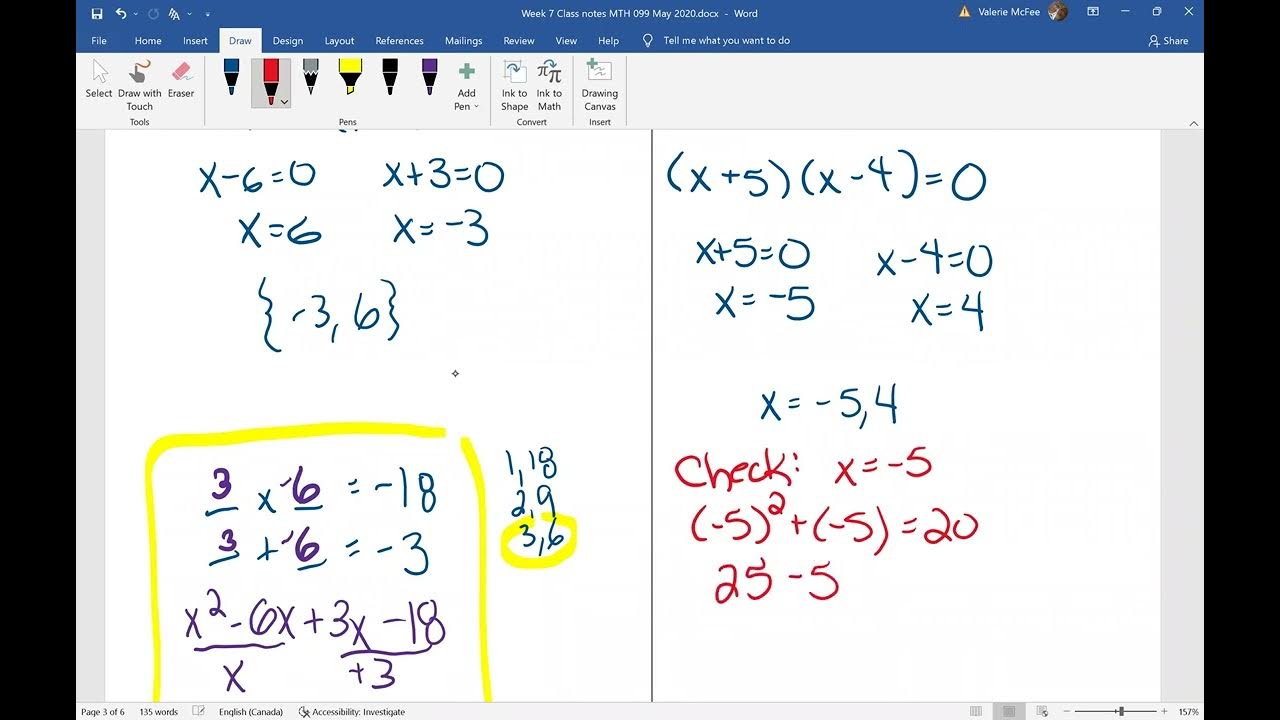 Week 7 Class notes MTH 099 May 2020.docx - Word
Valerie McFee
File Home Insert Draw Design Layout References Mailings Review View Help Tell me what you want to do
Share
Select
Draw with Touch
Eraser
Add Pen
Ink to Shape
Ink to Math
Drawing Canvas
Tools
Pens
Convert
Insert
x-6=0 x+3=0
x=6 x=-3
{-3,6}
3 x -6 = -18
3 + -6 = -3
x²-6x+3x-18
x +3
1,18
2,9
3,6
(x+5)(x-4)=0
x+5=0 x-4=0
x=-5 x=4
x=-5,4
Check: x=-5
(-5)²+(-5)=20
25-5
Page 3 of 6 135 words English (Canada) Accessibility: Investigate 157%